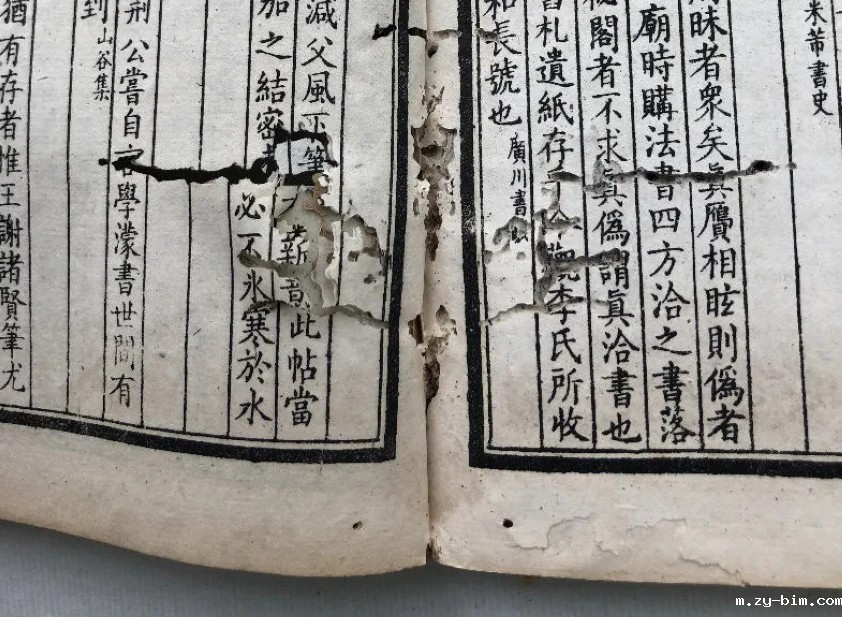 米芾書史
眛者衆矣眞贋相眩則僞者
廟時購法書四方洽之書落
閣者不求眞僞謂眞洽書也
書札遺紙存 李氏所收
和長號也 廣川書
減父風下筆 新意此帖當
加之結密 必不氷寒於水
荊公嘗自言學濛書世間有
到 山谷集
猶有存者惟王謝諸賢筆尤
m.zy-bim.com